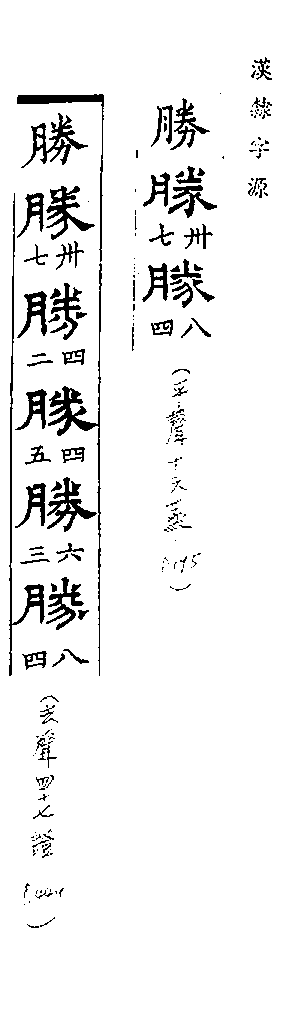 漢隸字源
勝
勝
卅七
勝
八四
(平聲十六蒸
勝
勝
卅七
勝
四二
勝
四五
勝
六三
勝
八四
(去聲四十七證